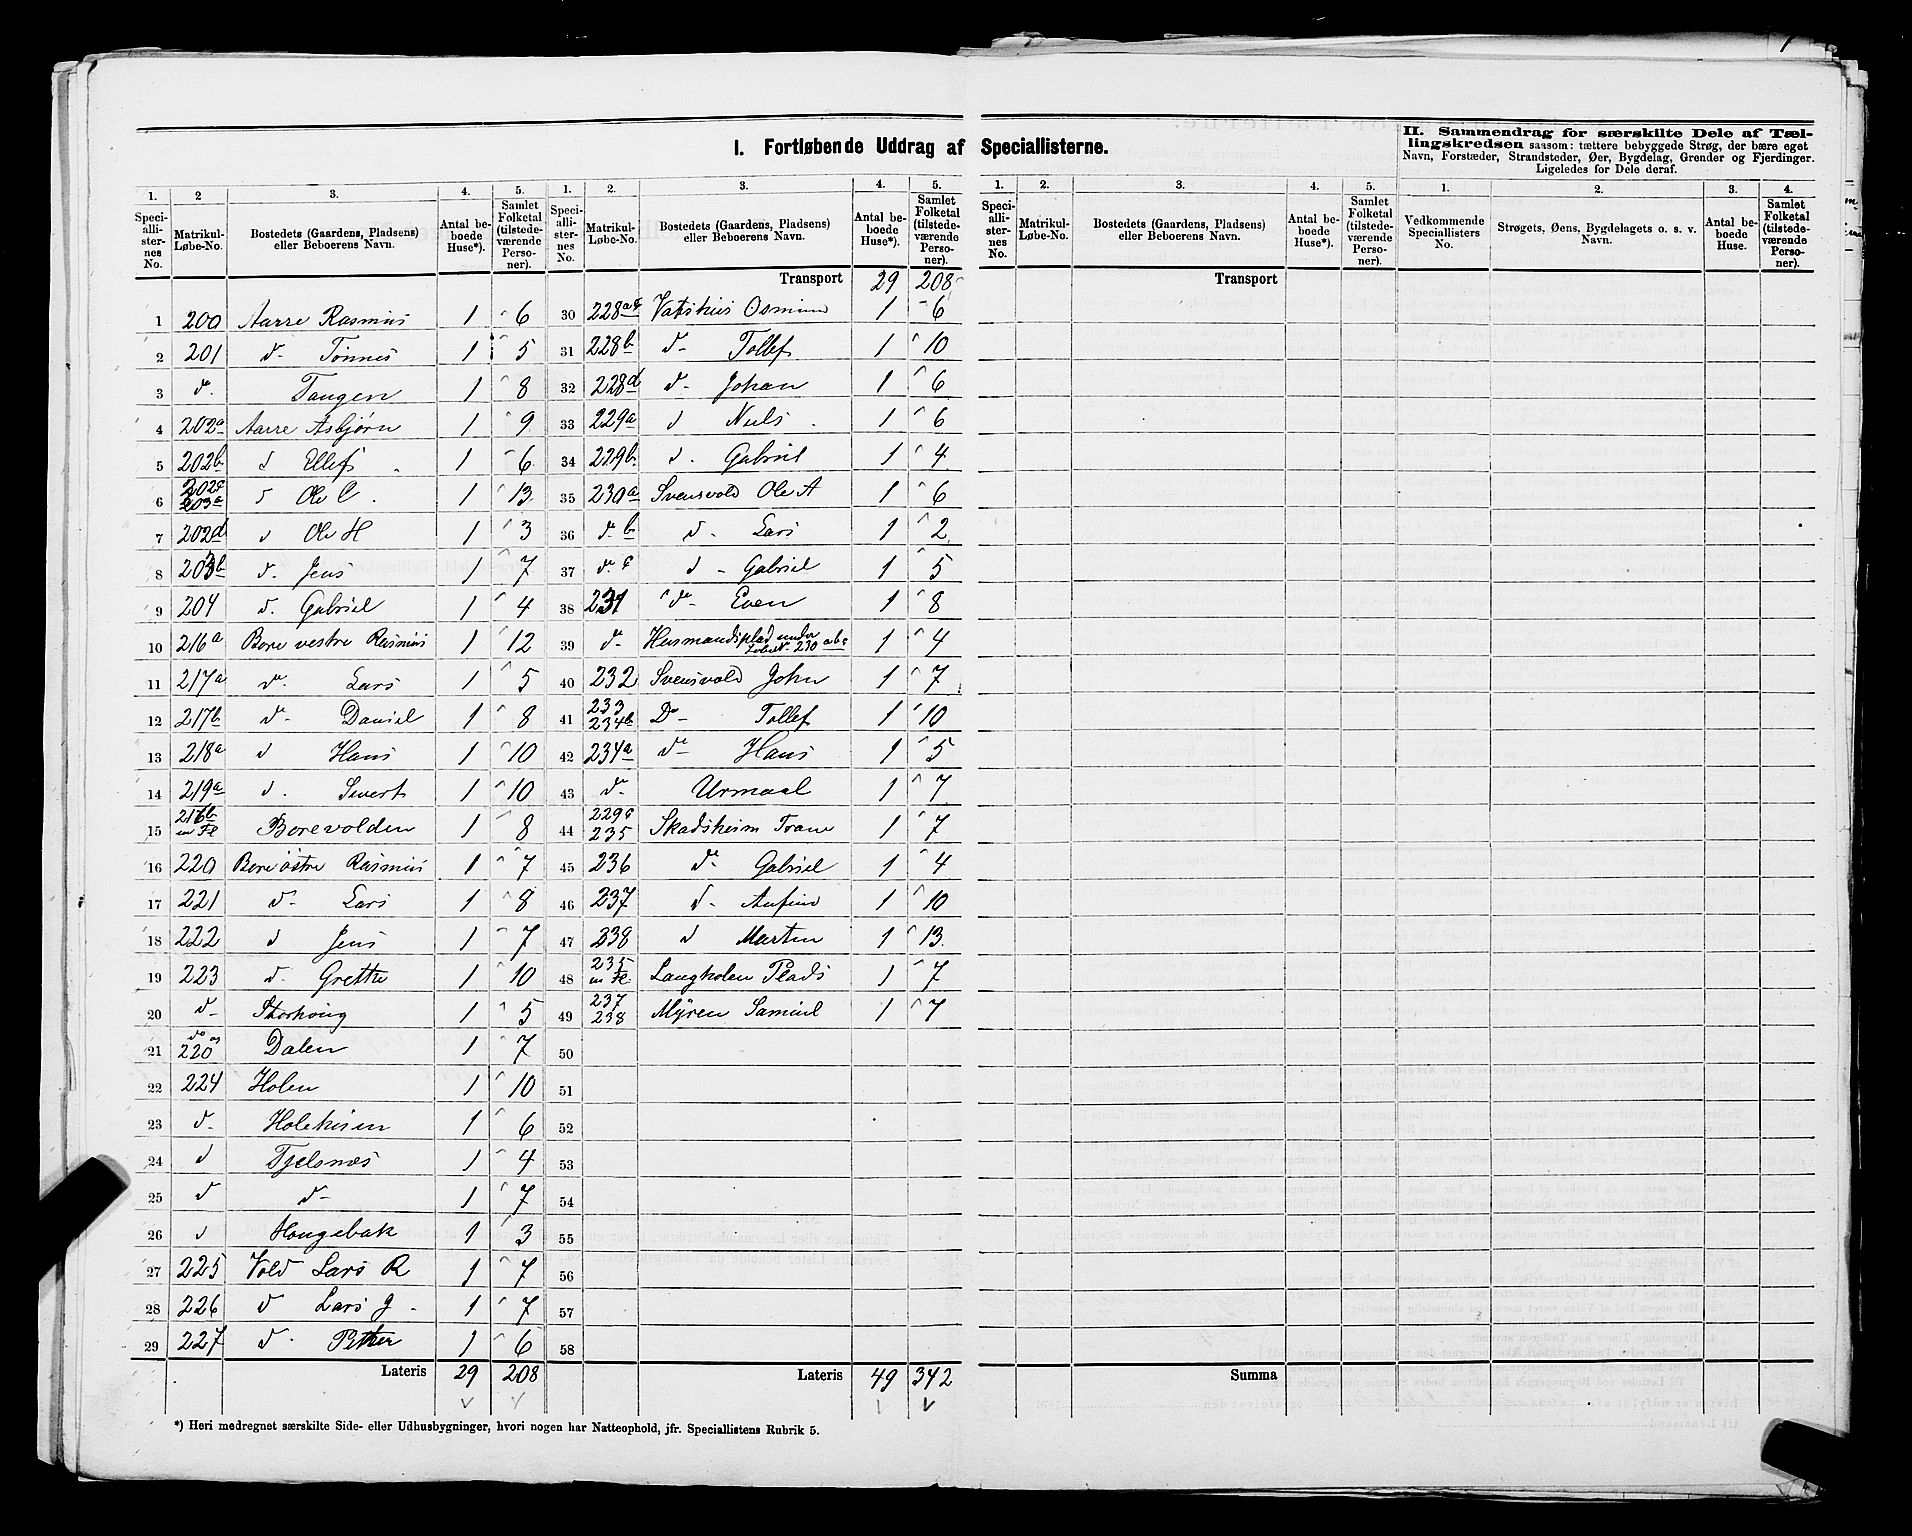 I. Fortløbende Uddrag af Speciallisterne.
II. Sammendrag for særskilte Dele af Tæl-
lingskredsen saasom: tættere bebyggede Strøg, der bære eget
Navn, Forstæder, Strandsteder, Øer, Bygdelag, Grender og Fjerdinger.
Ligeledes for Dele deraf.
1. 2 3. 4. 5. 1. 2. 3. 4. 5. 1. 2. 3. 4. 5. 1. 2. 3. 4.
Speci-alli-ster-nes No. Matrikul-Løbe-No. Bostedets (Gaardens, Pladsens) eller Beboerens Navn. Antal be-boede Huse*). Samlet Folketal (tilstede-værende Perso-ner).
Speci-alli-ster-nes No. Matrikul-Løbe-No. Bostedets (Gaardens, Pladsens) eller Beboerens Navn. Antal be-boede Huse*). Samlet Folketal (tilstede-værende Perso-ner).
Speci-alli-ster-nes No. Matrikul-Løbe-No. Bostedets (Gaardens, Pladsens) eller Beboerens Navn. Antal be-boede Huse*). Samlet Folketal (tilstede-værende Perso-ner).
Vedkommende Speciallisters No. Strøgets, Øens, Bygdelagets o. s. v. Navn. Antal be-boede Huse. Samlet Folketal (tilstede-værende Perso-ner).
1 200 Aarre Rasmus 1 6
2 201 d- Tönnes 1 5
3 do Tangen 1 8
4 202a Aarre Asbjørn 1 9
5 202b d Ellef 1 6
6 202c 203a d Ole C. 1 13
7 202d d Ole H 1 3
8 203b d. Jens 1 7
9 204 d. Gabriel 1 4
10 216a Bore vestre Rasmus 1 12
11 217a do. Lars 1 5
12 217b do- Daniel 1 8
13 218a d Hans 1 10
14 219a d. Sivert 1 10
15 216b m Fl Borevolden 1 8
16 220 Bore östre Rasmus 1 7
17 221 d- Lars 1 8
18 222 d Jens 1 7
19 223 d. Grethe 1 10
20 d- Storhoug 1 5
21 do og 220 Dalen 1 7
22 224 Holen 1 10
23 d. 1 6
24 d Tjelsnæs 1 4
25 d d- 1 7
26 d Hougebak 1 3
27 225 Vold Lars R 1 7
28 226 d Lars J. 1 7
29 227 d. Pether 1 6
Lateris 29 208
Transport 29 208
30 228 Osmun 1 6
31 228b d- Tollef 1 10
32 228d d- Johan 1 6
33 229a d Niels 1 6
34 229b d. Gabriel 1 4
35 230a Svensvold Ole A 1 6
36 do b d- Lars 1 2
37 do c d- Gabriel 1 5
38 231 do- Even 1 8
39 do Husmandsplad under Løbe No 230 abc 1 4
40 232 Svensvold John 1 7
41 233 234b Do- Tollef 1 10
42 234a do- Hans 1 5
43 do- Urmaal 1 7
44 229c 235 Skadsheim Trane 1 7
45 236 do- Gabriel 1 4
46 237 d- Anfind 1 10
47 238 d Marten 1 13
48 235 m Fl. Langholen Plads 1 7
49 237 238 Mÿren Samuel 1 7
50
51
52
53
54
55
56
57
58
Lateris 49 342
Transport
Summa
*) Heri medregnet særskilte Side- eller Udhusbygninger, hvori nogen har Natteophold, jfr. Speciallistens Rubrik 5.